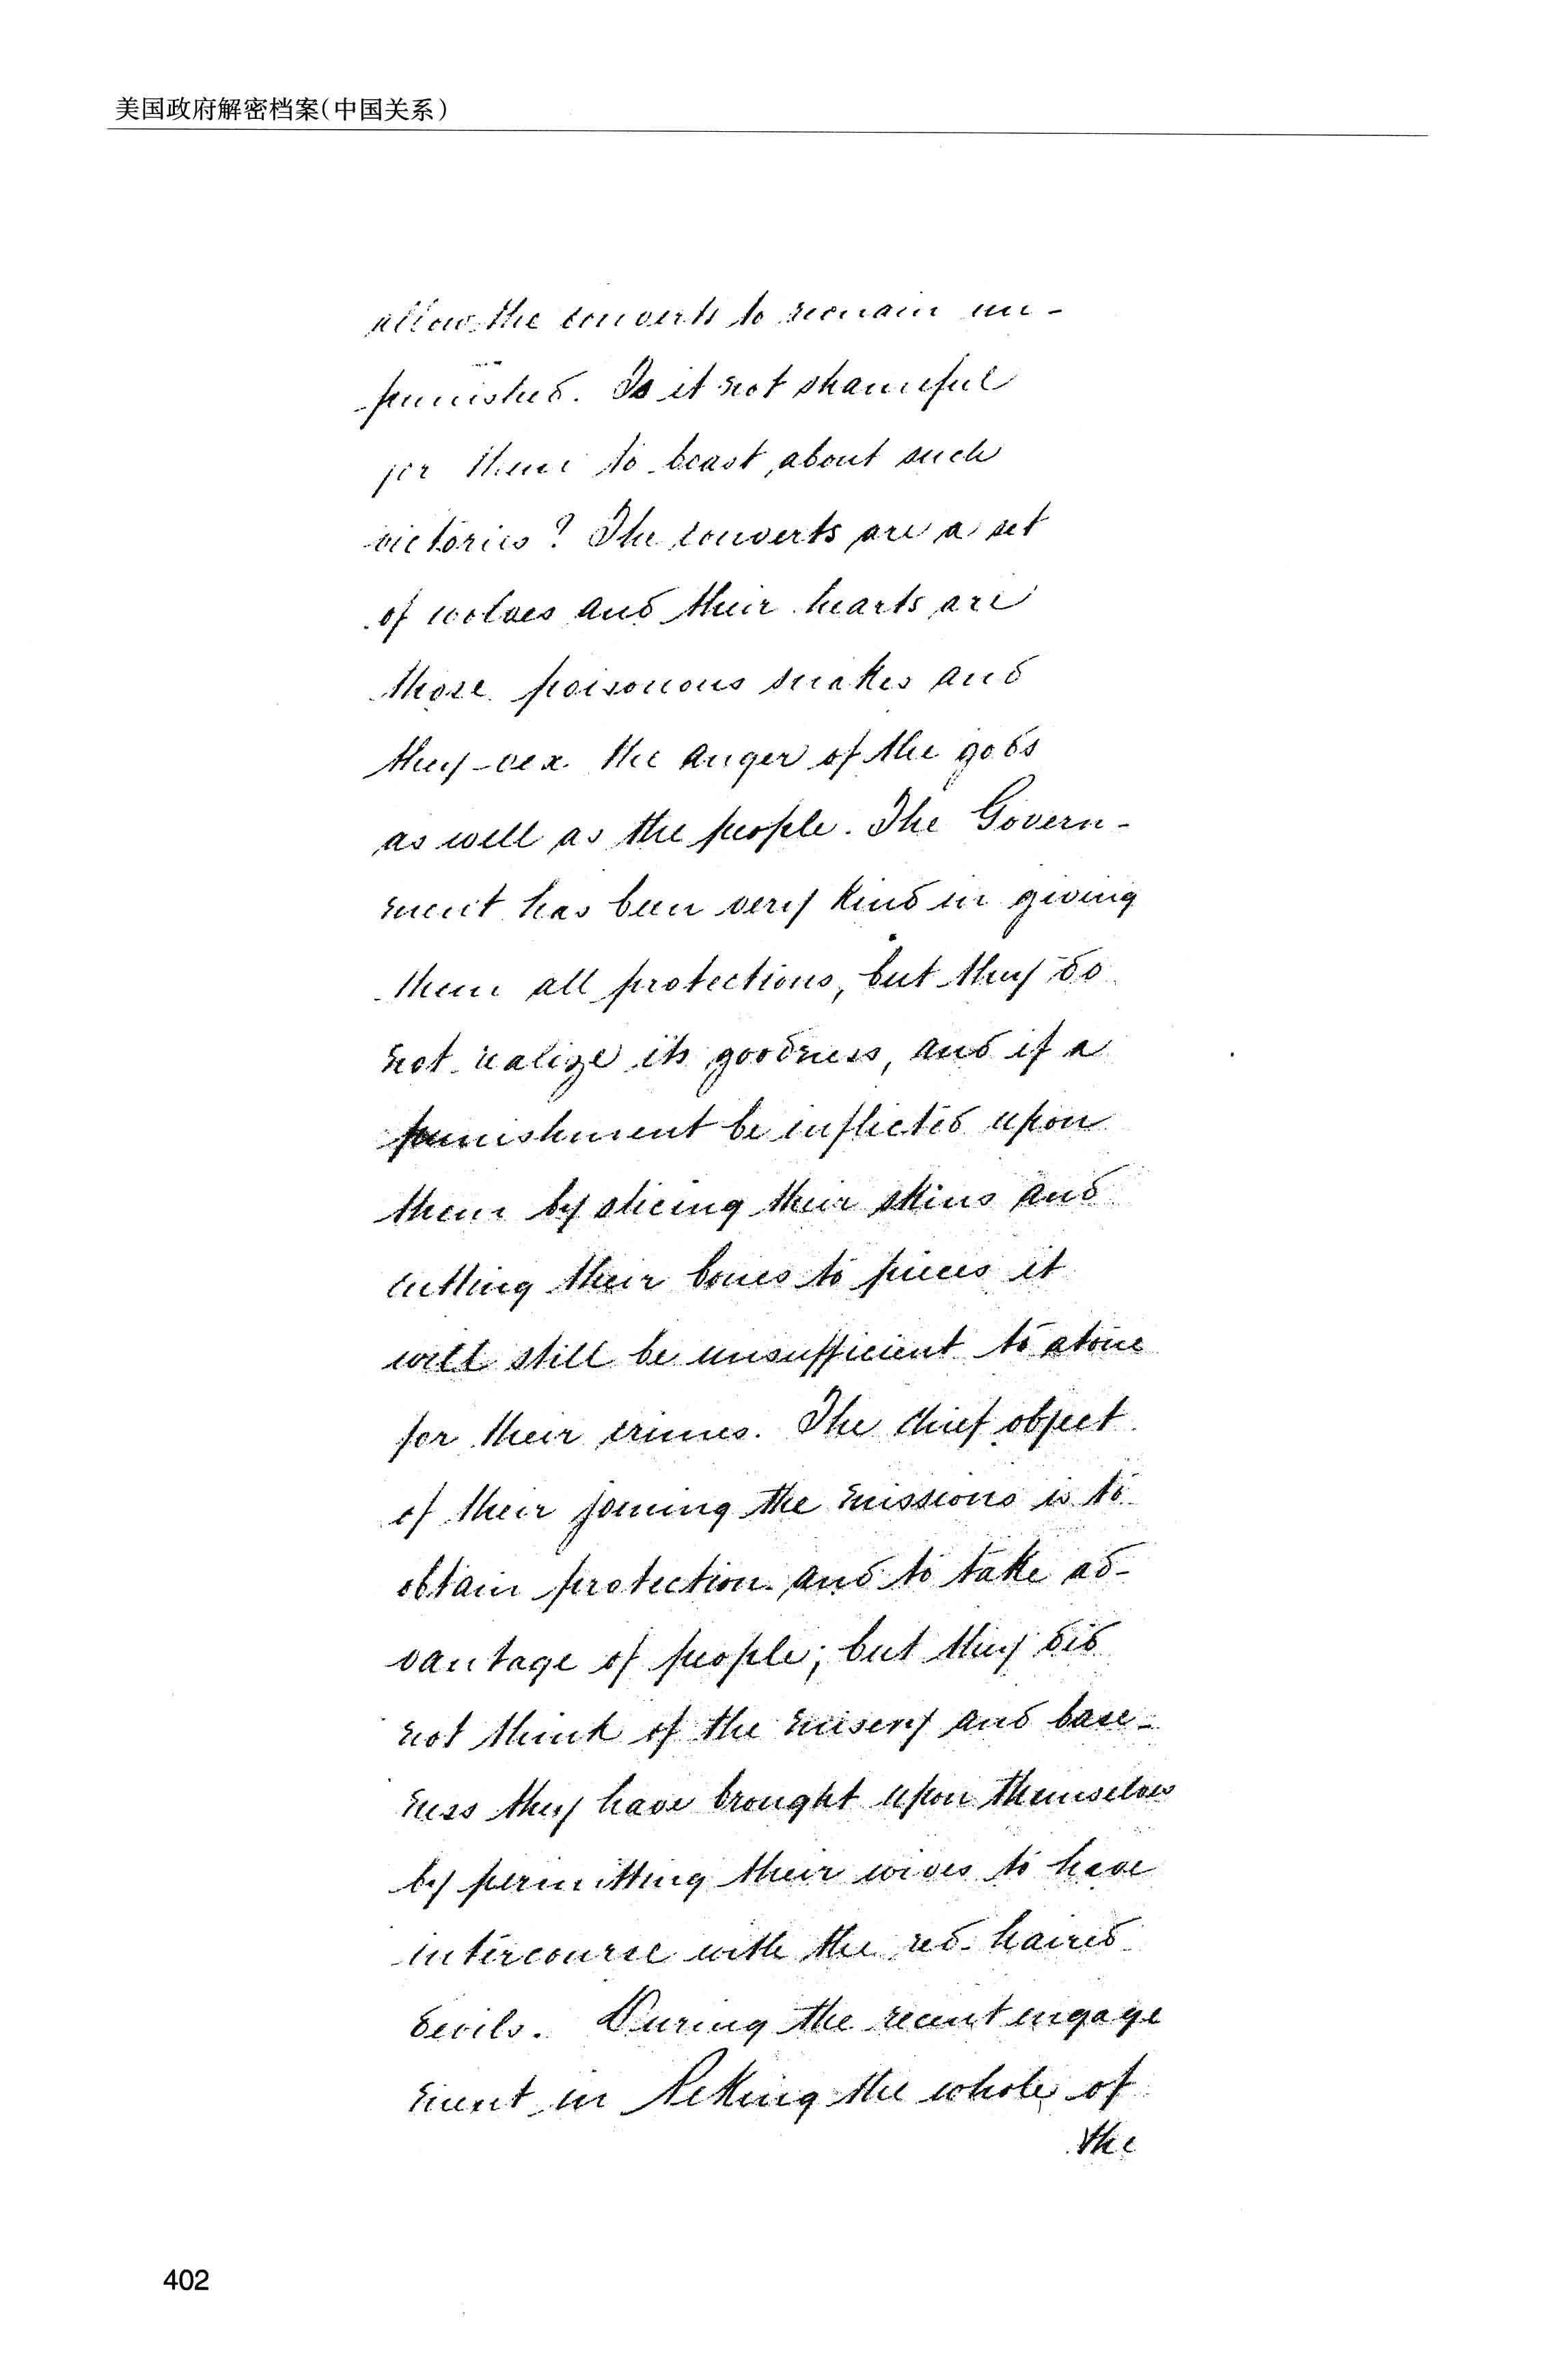 美国政府解密档案(中国关系)
allow the converts to remain un-
punished. Is it not shameful
for them to boast about such
victories? The converts are a set
of wolves and their hearts are
those poisonous snakes and
they vex the anger of the gods
as well as the people. The Govern-
ment has been very kind in giving
them all protections, but they do
not realize its goodness, and if a
punishment be inflicted upon
them by slicing their skins and
cutting their bones to pieces it
will still be unsufficient to atone
for their crimes. The chief object
of their joining the missions is to
obtain protection and to take ad-
vantage of people; but they did
not think of the misery and base-
ness they have brought upon themselves
by permitting their wives to have
intercourse with the red-haired
devils. During the recent engage
ment in Peking the whole of
the
402